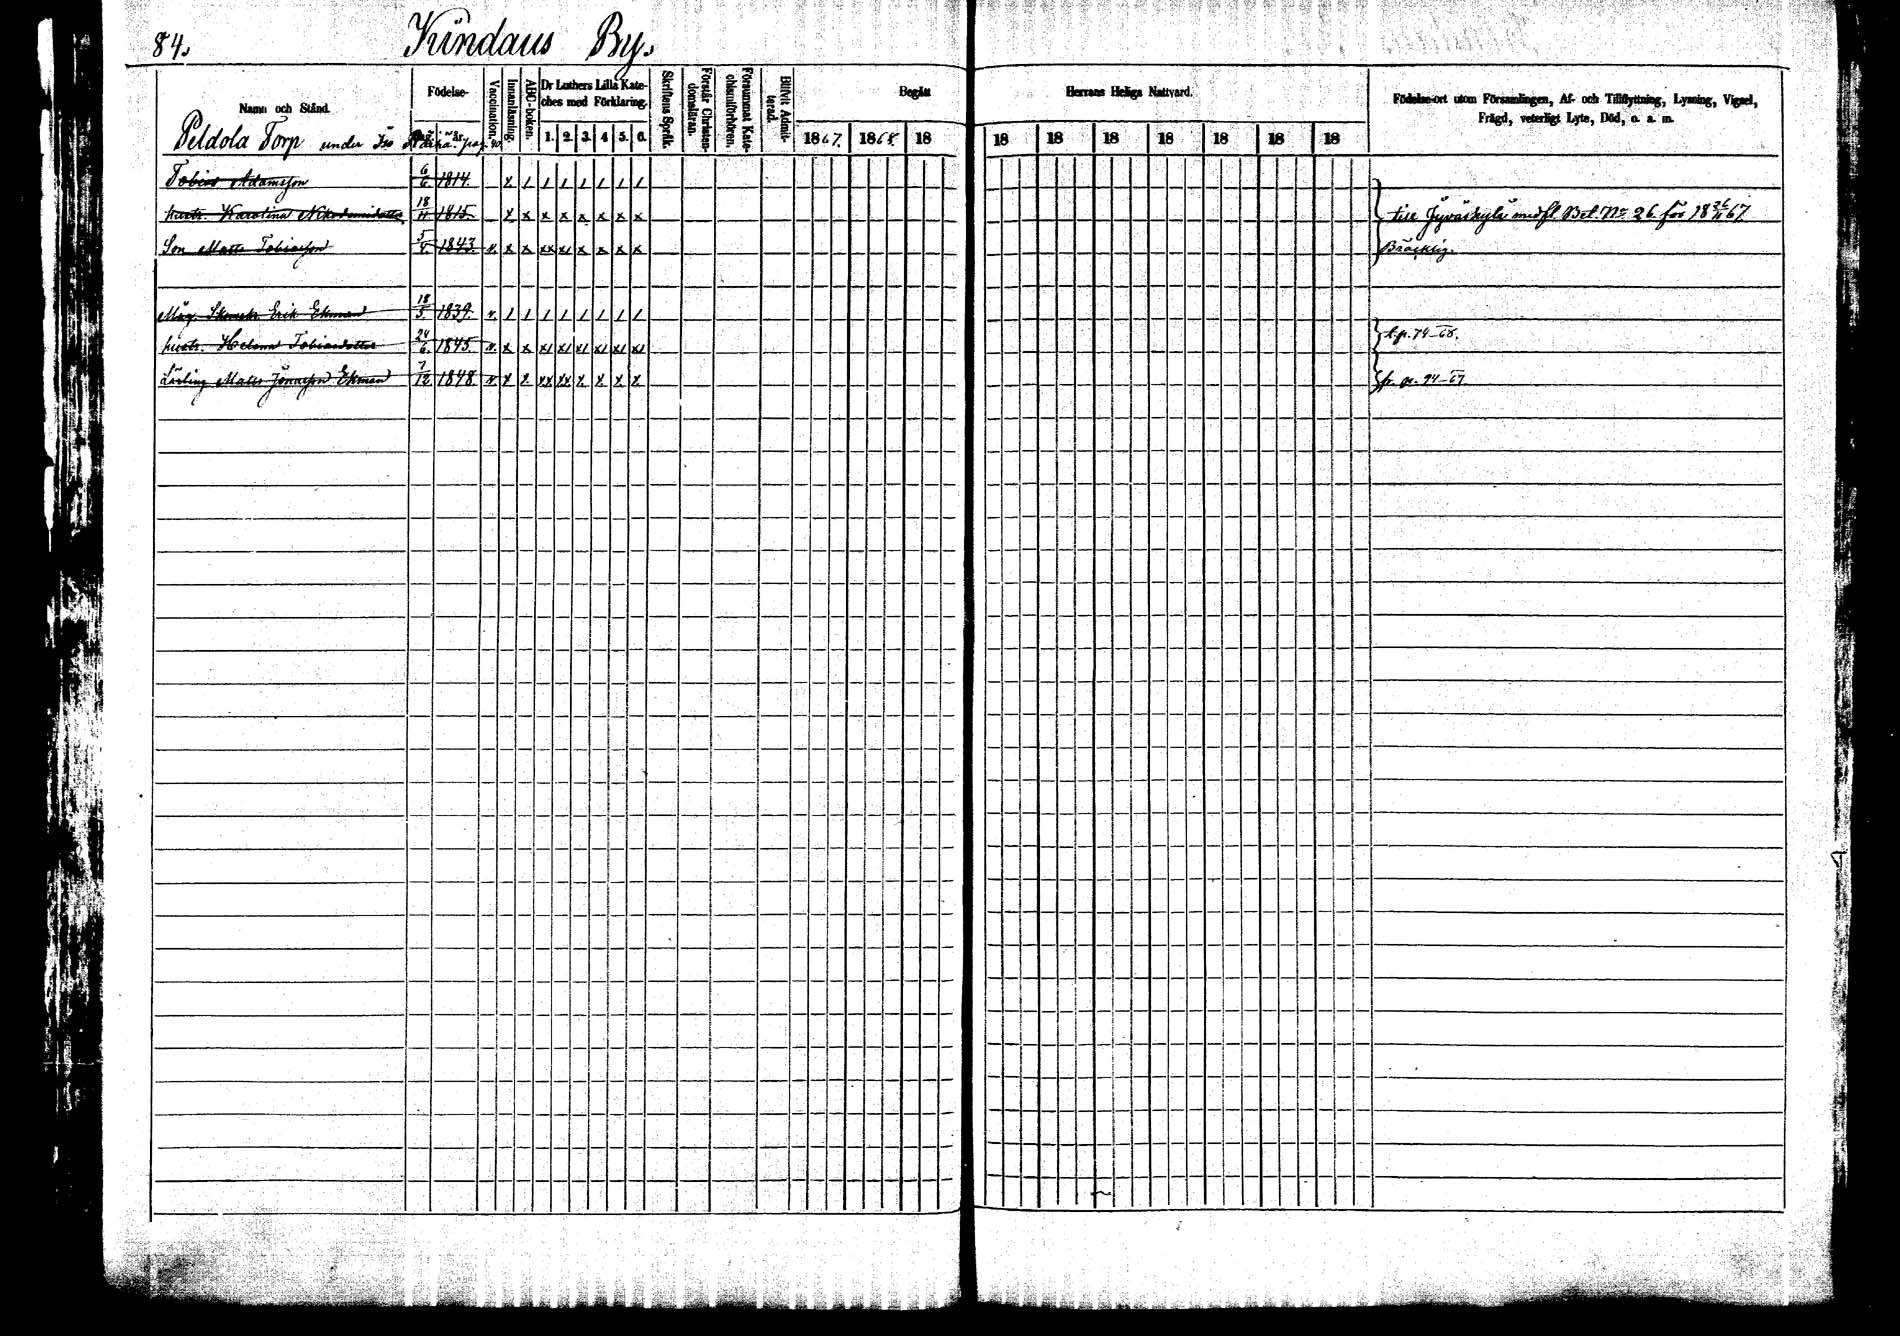 84. Kündaus By.
Namn och Stånd. Födelse- Vaccination. Innanläsning. ABC-boken. Dr Luthers Lilla Kateches med Förklaring. Skriftens Språk. Förstår Christendomsläran. Försummat Katechismiförhören. Blifvit Admitterad. Begått Herrans Heliga Nattvard. Födelse-ort utom Församlingen, Af- och Tillflyttning, Lysning, Vigsel, Frägd, veterligt Lyte, Död, o. a. m.
år. 1. 2. 3. 4 5. 6. 1867. 1868. 18 18 18 18 18 18 18 18
Peldola Torp under Iso pag. 90.
Tobias Adamsson 6/6 1814.
hustr. Karolina Nikodemidotter 18/11 1815 till Jyväskylä med fl. Bet. No 26 för 18 26/11 67
Son Matts Tobiasson 5/4. 1843. v. Bräcklig.
Måg Erik Ekman 18/5. 1839. v.
hustr. Helena Tobiasdotter 24/6. 1845. v. t. p. 74-68.
Lärling Matts Jonasson Ekman 7/12 1848. v. fr. p. 94-67